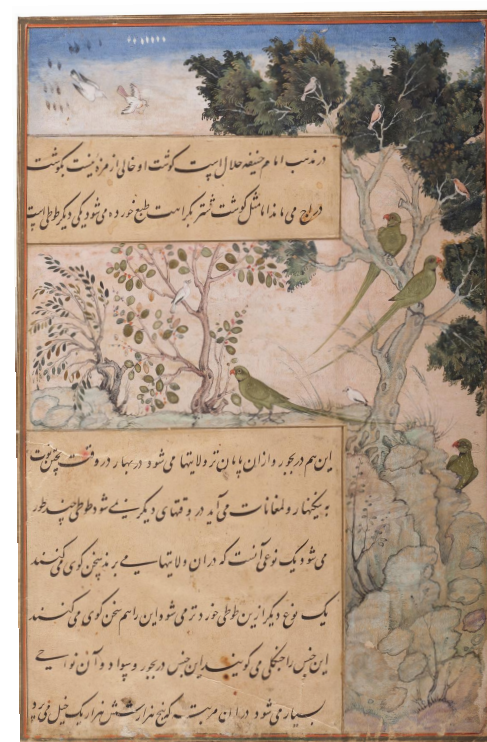 در مذهب امام حنیفه حلال است گوشت او خالی از مزه نیست بگوشت
دراج می ماند اما مثل گوشت شتر بکراهت طبع خورده می شود یکی دیگر طوطی است
این هم در بجور و ازان پایان تر ولایتها می شود در بهار در وقت پختن توت
به نیکنهار و لمغانات می آید در وقتهای دیگر نمی شود طوطی چند طور
می شود یک نوعی آنست که در ان ولایتها می برند سخن گوی می کنند
یک نوع دیگر ازین طوطی خورد تر می شود این را هم سخن گوی می کنند
این جنس را جنگلی می گویند این جنس در بجور و سواد و آن نواحی
بسیار می شود در ان مرتبه که پنج هزار شش هزار یک خیل می رود